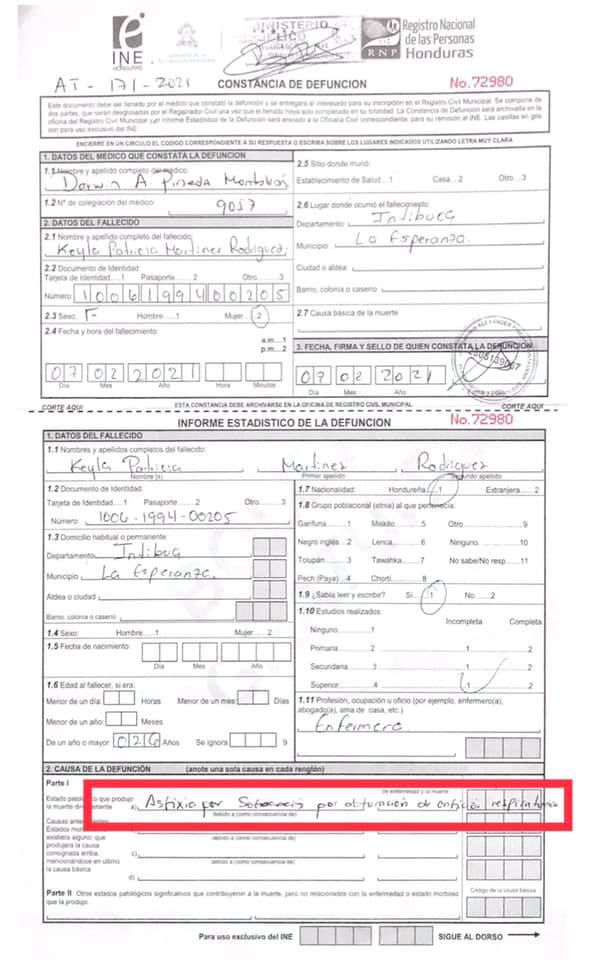 INE
HONDURAS
MINISTERIO
RNP
Registro Nacional
de las Personas
Honduras
AT - 171 - 2021
CONSTANCIA DE DEFUNCION
No.72980
Este documento debe ser llenado por el médico que constató la defunción y se entregará al interesado para su inscripción en el Registro Civil Municipal. Se compone de
dos partes, que serán desglosadas por el Registrador Civil una vez que el llenado haya sido completado en su totalidad. La Constancia de Defunción será archivada en la
oficina del Registro Civil Municipal y el Informe Estadístico de la Defunción será enviado a la Oficialía Civil correspondiente, para su remisión al INE. Las casillas en gris
son para uso exclusivo del INE.
ENCIERRE EN UN CIRCULO EL CODIGO CORRESPONDIENTE A SU RESPUESTA O ESCRIBA SOBRE LOS LUGARES INDICADOS UTILIZANDO LETRA MUY CLARA
1. DATOS DEL MÉDICO QUE CONSTATA LA DEFUNCIÓN
1.1 Nombre y apellido completo del médico:
Darwin A Pineda
1.2 N° de colegiación del médico: 9057
2. DATOS DEL FALLECIDO
2.1 Nombre y apellido completo del fallecido:
Keyla Patricia Martinez Rodriguez
2.2 Documento de Identidad:
Tarjeta de Identidad...1 Pasaporte...2 Otro...3
Número: 1006199400205
2.3 Sexo: F Hombre ....1 Mujer...2
2.4 Fecha y hora del fallecimiento:
a.m...1
p.m...2
07 02 2021
Día Mes Año Hora Minutos
2.5 Sitio donde murió:
Establecimiento de Salud...1 Casa...2 Otro...3
2.6 Lugar donde ocurrió el fallecimiento:
Departamento: Intibuca
Municipio: La Esperanza.
Ciudad o aldea:
Barrio, colonia o caserío:
2.7 Causa básica de la muerte
3. FECHA, FIRMA Y SELLO DE QUIEN CONSTATA LA DEFUNCIÓN
07 02 2021
Día Mes Año
CORTE AQUI ESTA CONSTANCIA DEBE ARCHIVARSE EN LA OFICINA DE REGISTRO CIVIL MUNICIPAL CORTE AQUI
INFORME ESTADISTICO DE LA DEFUNCION
No.72980
1. DATOS DEL FALLECIDO
1.1 Nombres y apellidos completos del fallecido:
Keyla Patricia Martinez Rodriguez
Nombre (s) Primer apellido Segundo apellido
1.2 Documento de Identidad:
Tarjeta de Identidad....1 Pasaporte....2 Otro....3
Número 1006-1994-00205
1.3 Domicilio habitual o permanente:
Departamento: Intibuca
Municipio La Esperanza.
Aldea o ciudad
Barrio, colonia o caserío
1.4 Sexo: Hombre....1 Mujer...2
1.5 Fecha de nacimiento:
Día Mes Año
1.6 Edad al fallecer, si era:
Menor de un día: Horas Menor de un mes: Días
Menor de un año: Meses
De un año o mayor: 026 Años Se ignora 9
1.7 Nacionalidad: Hondureña....1 Extranjera....2
1.8 Grupo poblacional (etnia) al que pertenecía:
Garífuna.......1 Miskito.......5 Otro.......9
Negro inglés..2 Lenca.......6 Ninguno.......10
Tolupán.......3 Tawahka.......7 No sabe/No resp...11
Pech (Paya)..4 Chortí.......8
1.9 ¿Sabía leer y escribir? Si...1 No...2
1.10 Estudios realizados:
Incompleta Completa
Ninguno.......1
Primaria.......2 1 2
Secundaria.......3 1 2
Superior.......4 1 2
1.11 Profesión, ocupación u oficio (por ejemplo, enfermero(a),
abogado(a), ama de casa, etc.)
Enfermera
2. CAUSA DE LA DEFUNCIÓN (anote una sola causa en cada renglón)
Parte I
de enfermedad y la muerte
Estado patológico que produjo
la muerte directamente a) Asfixia por Sofocacion por obturación de orificios respiratorios
debido a (como consecuencia de)
Causas
Estados
existiera alguno, que
produjera la causa
consignada arriba,
mencionándose en último
la causa básica
c)
debido a (como consecuencia de)
d)
Parte II Otros estados patológicos significativos que contribuyeron a la muerte, pero no relacionados con la enfermedad o estado morboso
que la produjo.
Código de la causa básica
Para uso exclusivo del INE SIGUE AL DORSO